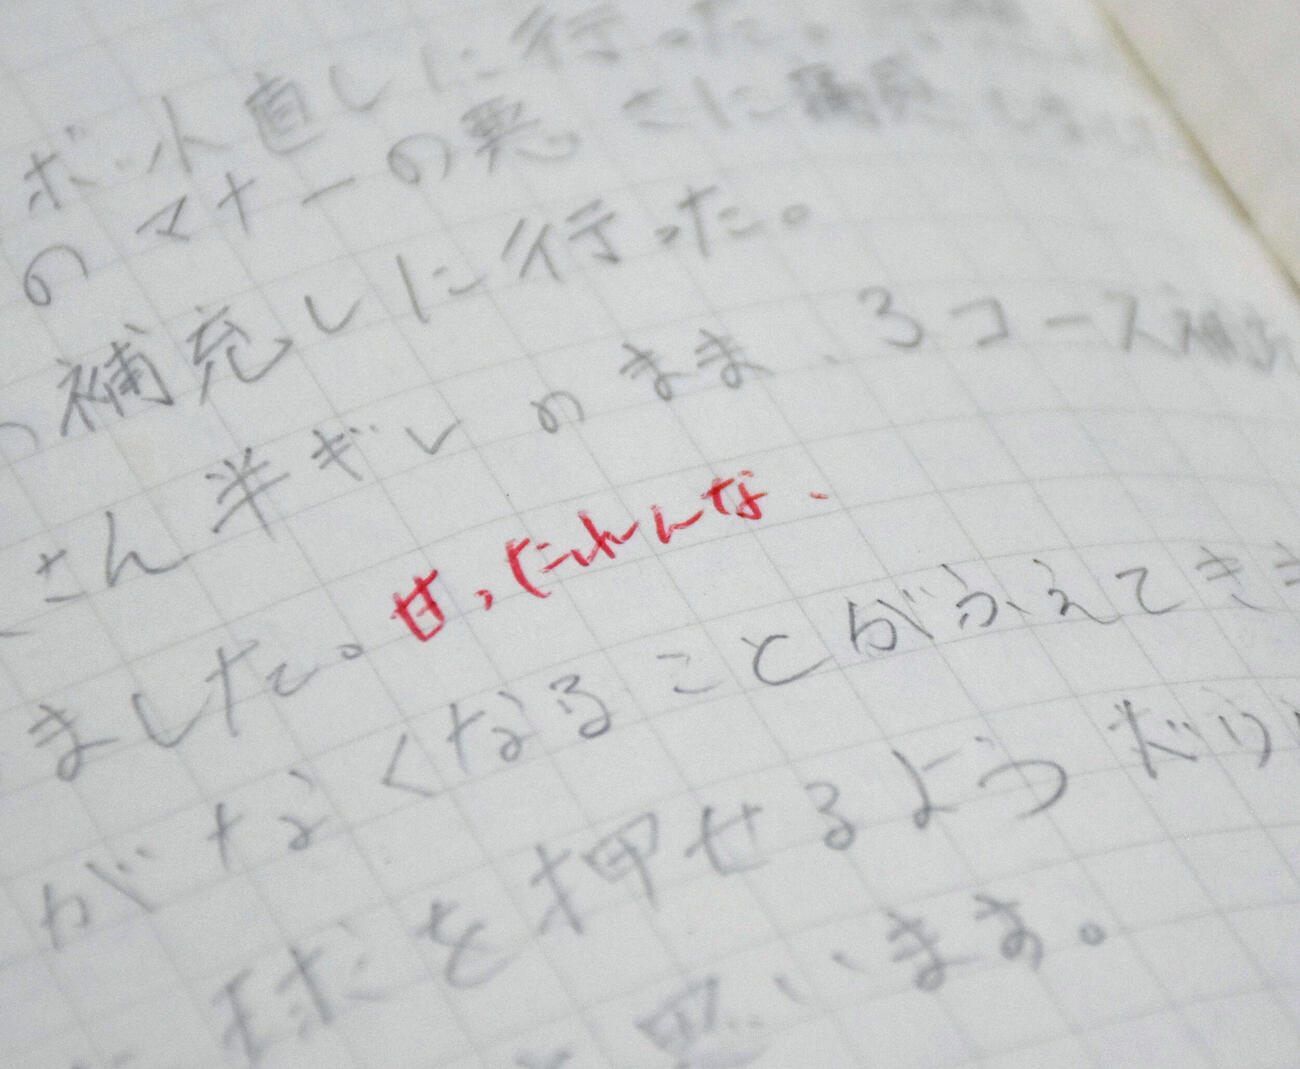 ボット直しに行った。
のマナーの悪さに
補充しに行った。
さん半ギレのまま、3コース補充
ました。甘ったれんな、
がなくなることがふえてき
球を押せるよう
思います。